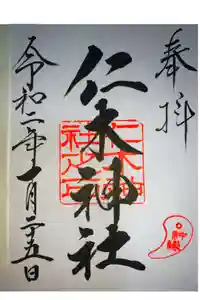 奉拝
仁木神社
令和二年十一月二十五日